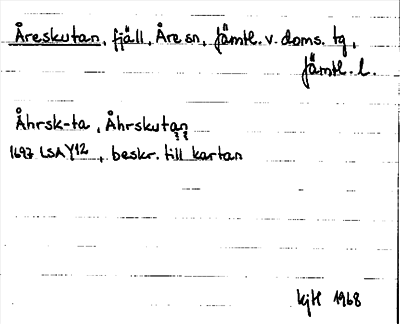 Åreskutan, fjäll, Åre sn, Jämtl. v. doms. tg,
Jämtl. l.
Åhrsk-ta, Åhrskutan
1697 LSA Y12, beskr. till kartan
KjH 1968